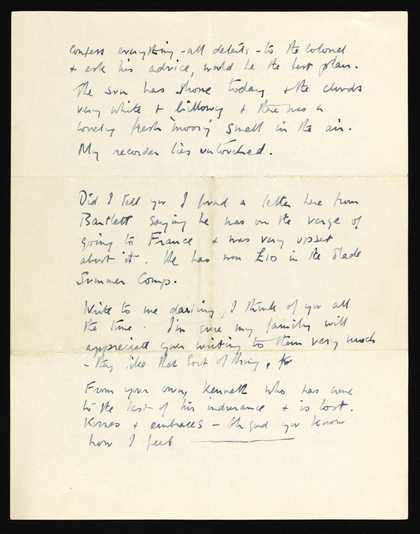 confess everything - all details - to the colonel
& ask his advice, would be the best plan.
The sun has shone today & the clouds
very white & billowy & there was a
lovely fresh 'moory' smell in the air.
My recorder lies untouched.
Did I tell you I found a letter here from
Bartlett saying he was on the verge of
going to France & was very upset
about it. He has won £10 in the Slade
Summer Comp.
Write to me darling, I think of you all
the time. I'm sure my family will
appreciate your writing to them very much
- they like that sort of thing.
From your own Kenneth who has come
to the last of his endurance & is lost.
Kisses & embraces - Oh god you know
how I feel